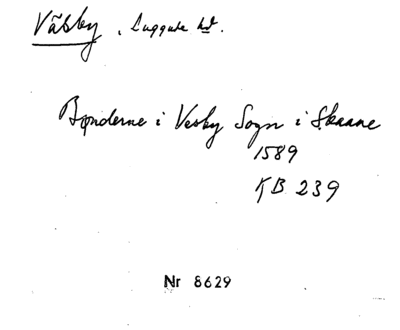 Väsby, Luggude hd.
Bønderne i Vesby Sogn i Skaane
1589
KB 239
Nr 8629